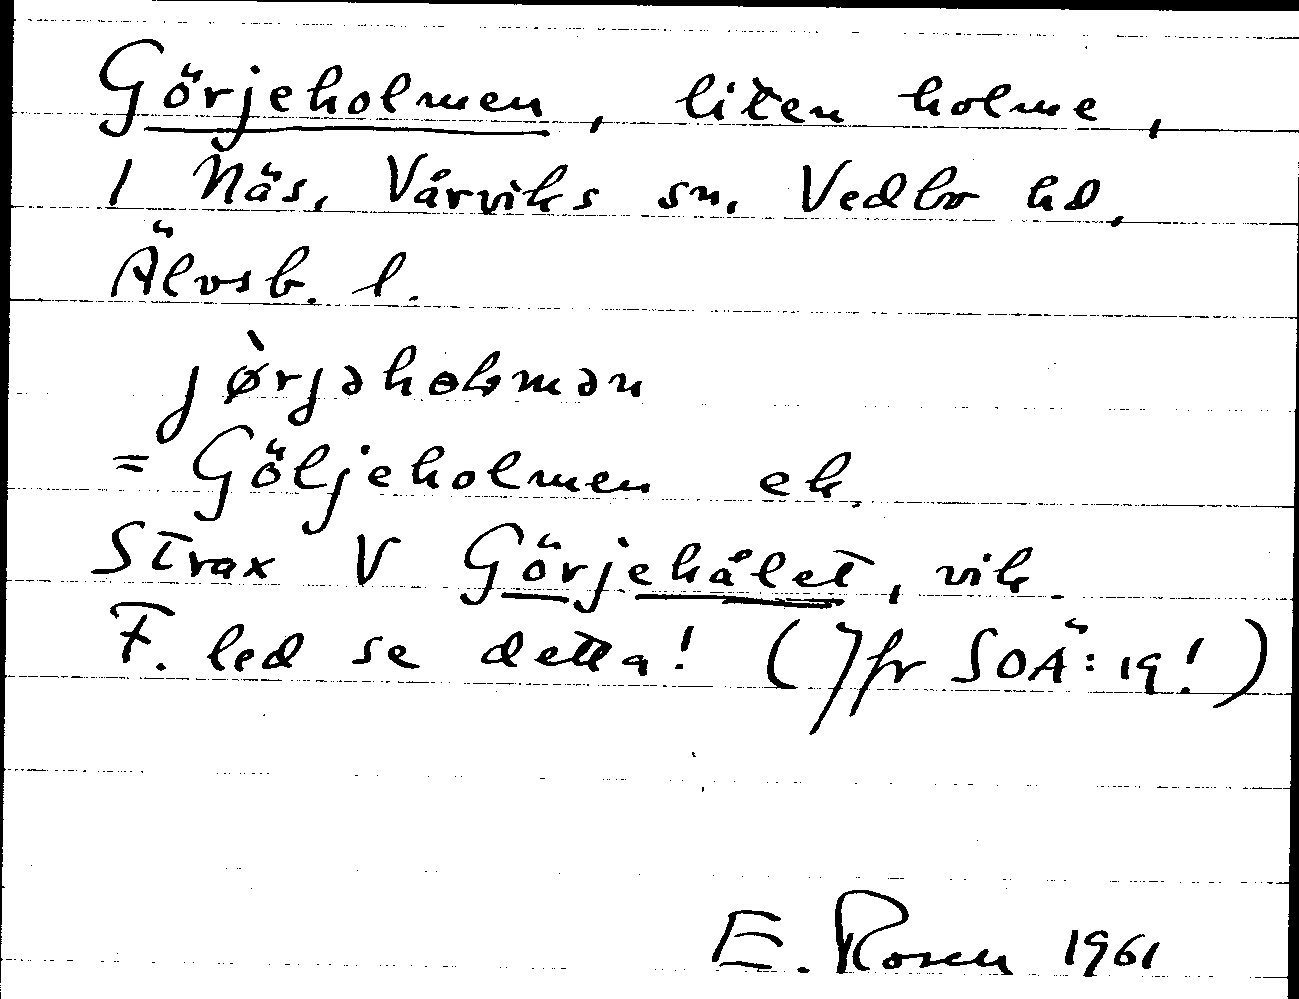 Görjeholmen, liten holme,
1 Näs, Vårviks sn. Vedbo hd,
Älvsb. l.
jø̀rjəholmən
= Göljeholmen ek.
Strax V Görjehålet, vik.
F. led se detta! (Jfr SOÄ: 19!)
E. Rosen 1961